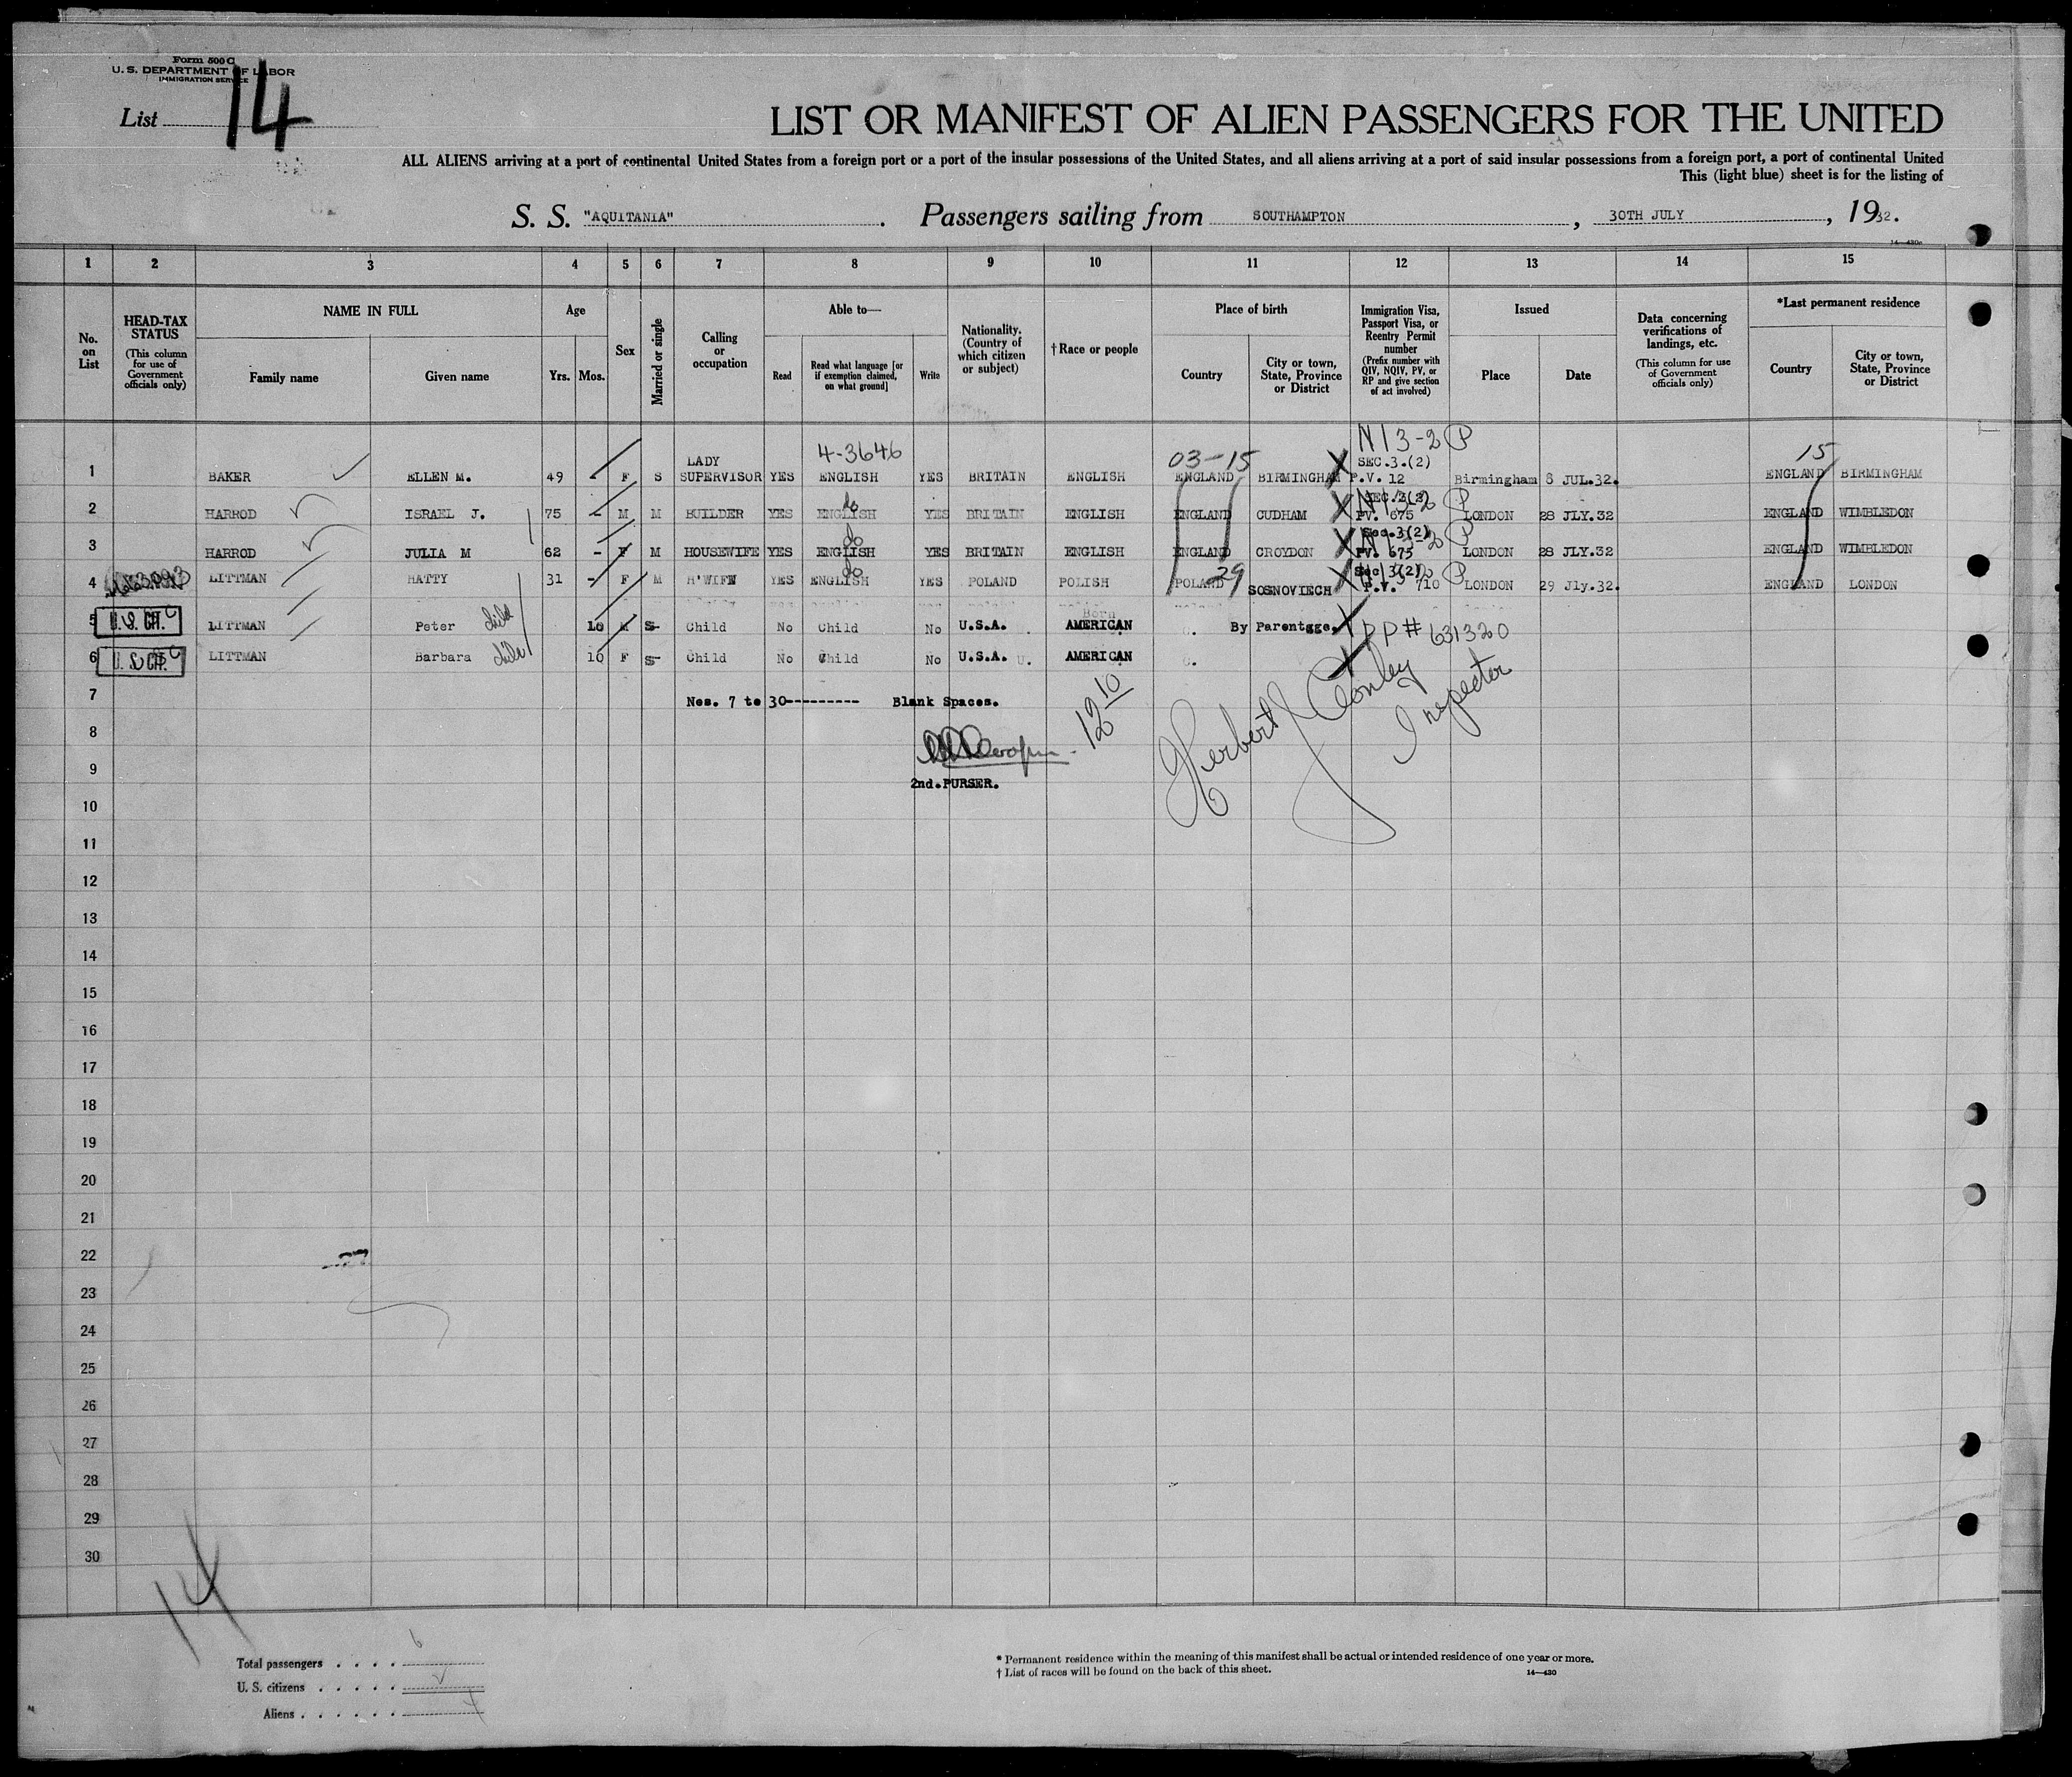 Form 500 C
U. S. DEPARTMENT OF LABOR
IMMIGRATION SERVICE
List 14
LIST OR MANIFEST OF ALIEN PASSENGERS FOR THE UNITED
ALL ALIENS arriving at a port of continental United States from a foreign port or a port of the insular possessions of the United States, and all aliens arriving at a port of said insular possessions from a foreign port, a port of continental United
This (light blue) sheet is for the listing of
S. S. "AQUITANIA". Passengers sailing from SOUTHAMPTON, 30TH JULY, 1932.
14—430c
1 2 3 4 5 6 7 8 9 10 11 12 13 14 15
No. on List
HEAD-TAX STATUS (This column for use of Government officials only)
NAME IN FULL
Family name
Given name
Age
Yrs. Mos.
Sex
Married or single
Calling or occupation
Able to—
Read
Read what language [or if exemption claimed, on what ground]
Write
Nationality. (Country of which citizen or subject)
† Race or people
Place of birth
Country
City or town, State, Province or District
Immigration Visa, Passport Visa, or Reentry Permit number (Prefix number with QIV, NQIV, PV, or RP and give section of act involved)
Issued
Place
Date
Data concerning verifications of landings, etc. (This column for use of Government officials only)
*Last permanent residence
Country
City or town, State, Province or District
4-3646 03-15 N 13-2 P 15
1 BAKER ELLEN M. 49 - F S LADY SUPERVISOR YES ENGLISH YES BRITAIN ENGLISH ENGLAND BIRMINGHAM SEC.3.(2) P.V. 12 Birmingham 8 JUL.32. ENGLAND BIRMINGHAM
2 HARROD ISRAEL J. 75 - M M BUILDER YES ENGLISH do YES BRITAIN ENGLISH ENGLAND CUDHAM SEC.3(2) PV. 675 P LONDON 28 JLY.32 ENGLAND WIMBLEDON
3 HARROD JULIA M 62 - F M HOUSEWIFE YES ENGLISH do YES BRITAIN ENGLISH ENGLAND CROYDON Sec.3(2) PV. 675 P LONDON 28 JLY.32 ENGLAND WIMBLEDON
4 LITTMAN HATTY 31 - F M H'WIFE YES ENGLISH do YES POLAND POLISH POLAND 29 SOSNOVIECH Sec 3(2) P.V. 710 P LONDON 29 Jly.32. ENGLAND LONDON
5 U.S. CIT. LITTMAN Peter child 10 M S Child No Child No U.S.A. Born AMERICAN By Parentage. PP# 631320
6 U.S. CIT. LITTMAN Barbara child 10 F S Child No Child No U.S.A. AMERICAN
7 Nos. 7 to 30--------- Blank Spaces. 12 10
8
Herbert J Conley Inspector
9
2nd.PURSER.
10
11
12
13
14
15
16
17
18
19
20
21
22
23
24
25
26
27
28
29
30
14
Total passengers . . . . 6
U. S. citizens . . . . .
Aliens . . . . . .
* Permanent residence within the meaning of this manifest shall be actual or intended residence of one year or more.
† List of races will be found on the back of this sheet. 14—430